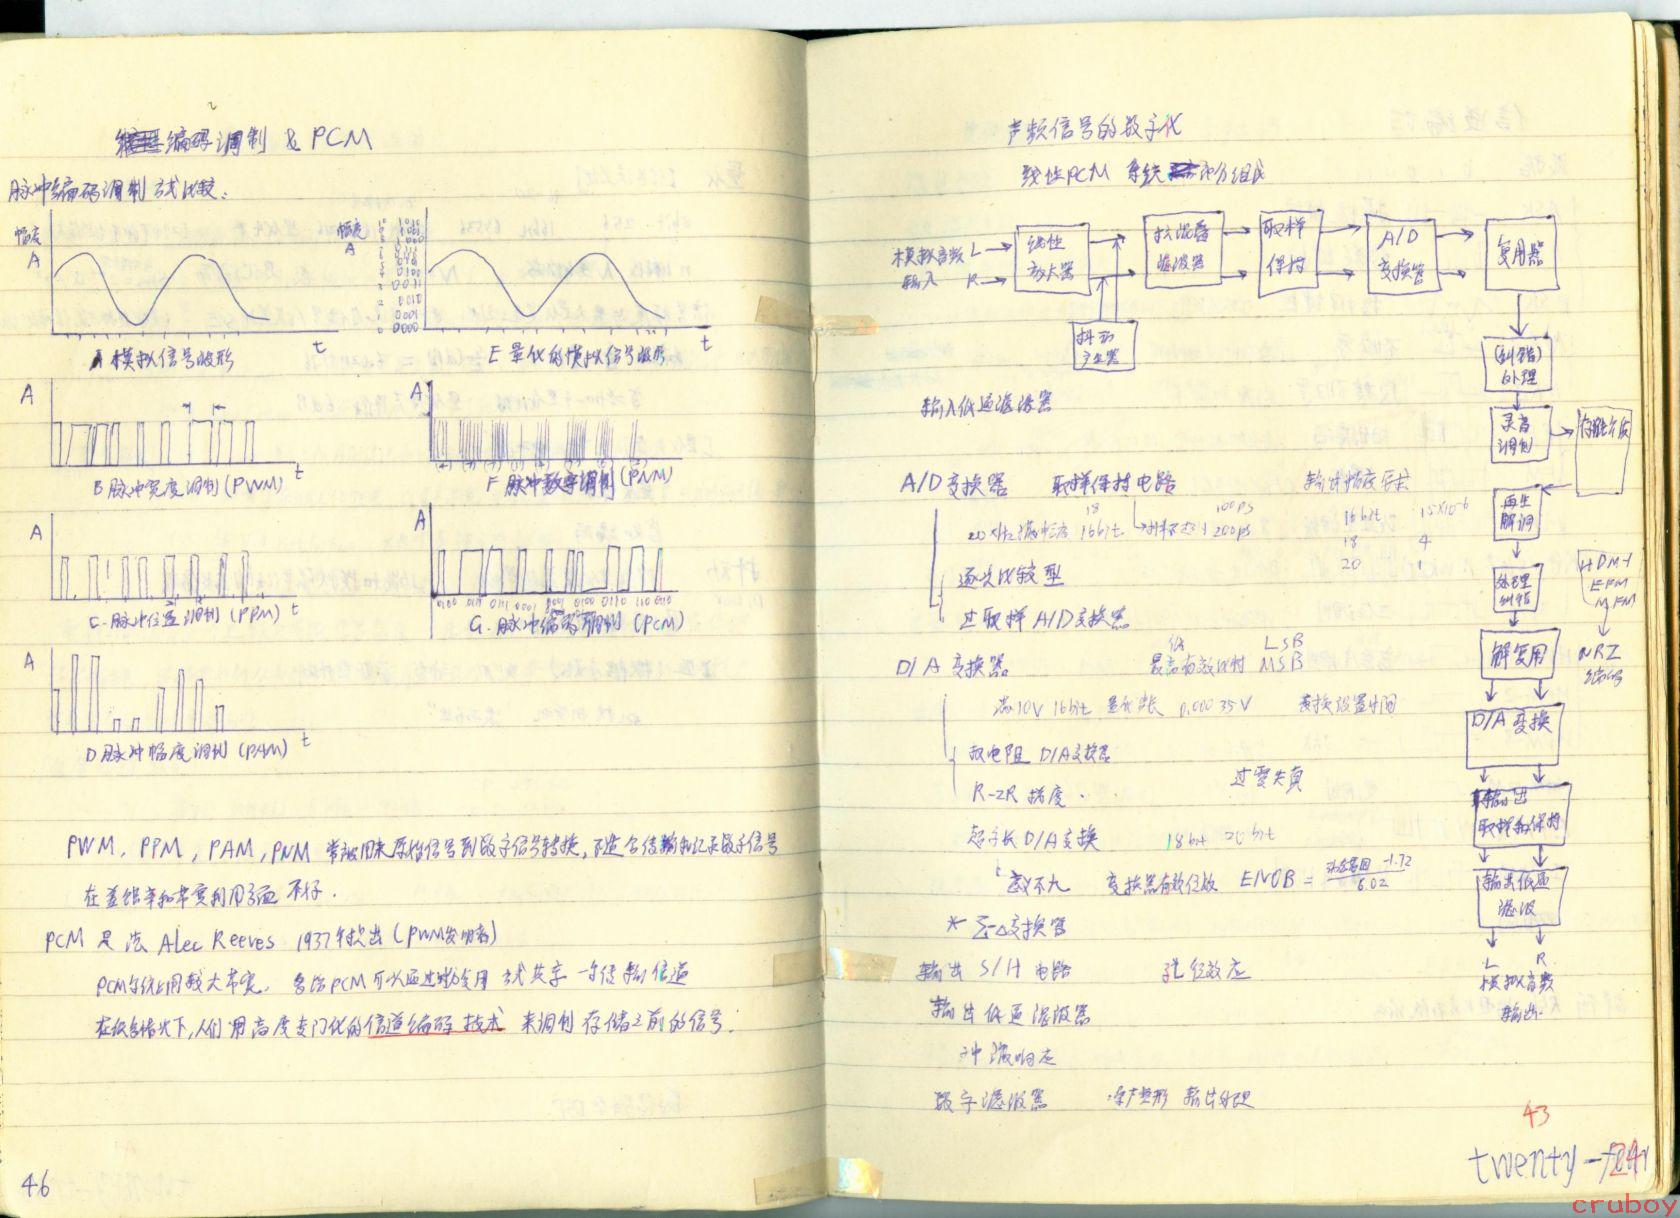 编码调制 & PCM
脉冲编码调制方式比较:
幅度
A
t
A 模拟信号波形
幅度
A
1010
0011
0010
0001
0000
t
E 量化的模拟信号波形
A
t
B 脉冲宽度调制(PWM)
A
F 脉冲数字调制(PNM)
A
t
C. 脉冲位置调制(PPM)
A
0100 0111 0111 0001 0100 0110 110 010
G. 脉冲编码调制(PCM)
A
t
D 脉冲幅度调制(PAM)
PWM, PPM, PAM, PNM 常被用来原始信号到数字信号转换,不适合传输和记录数字信号
在差错率和带宽利用方面 不行.
PCM 是 法 Alec Reeves 1937年提出(PWM发明者)
PCM 用较大带宽. 多路PCM可以通过 复用 方式共享 一个传输信道
在 情况下,人们用高度专门化的信道编码技术 来调制存储之前的信号.
46
声频信号的数字化
线性PCM 系统 部分组成
模拟音频 L
输入 R
线性
放大器
滤波器
取样
保持
A/D
变换器
复用器
抖动
产生器
(纠错)
处理
录音
调制
存储介质
再生
解调
处理
纠错
HDM-1
EFM
MFM
NRZ
编码
解复用
D/A 变换
输出
取样和保持
输出低通
滤波
L R
模拟音频
输出.
输入低通滤波器
A/D变换器 取样保持电路 输出幅度
18 100ps
20 kHz满幅度 16bit 200ps
16bit 15×10-6
18 4
20 1
逐次比较型
过取样 A/D变换器
D/A 变换器
低 LSB
最高有效比特 MSB
满10V 16bit 量化 0.00035V 转换设置时间
权电阻 D/A变换器
R-2R 梯度.
过零失真
超字长D/A变换 18bit 20bit
变换器有效位数 ENOB = 动态范围 -1.72
6.02
* Σ-Δ变换器
输出 S/H 电路 孔径效应
输出低通滤波器
冲激响应
数字滤波器 噪声整形 输出处理
43
twenty-four
24
cruboy